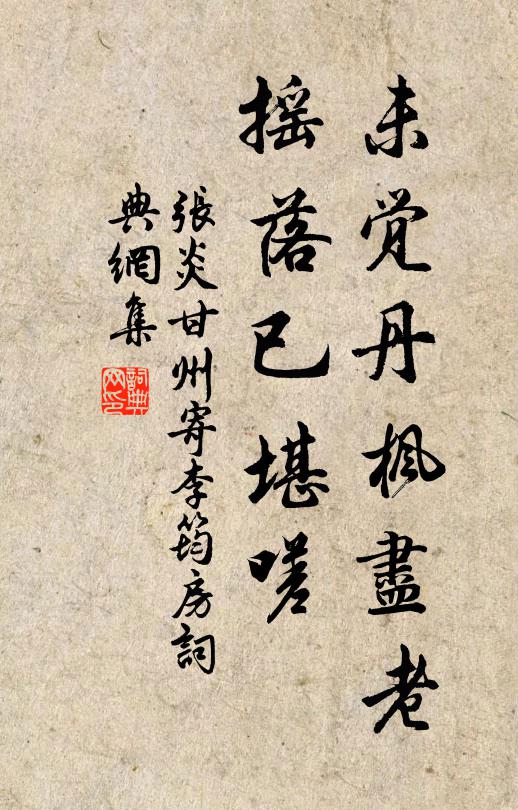 未觉丹楓盡老
摇落已堪嗟
張炎甘州寄李筠房詞
典網集
詞典
网印